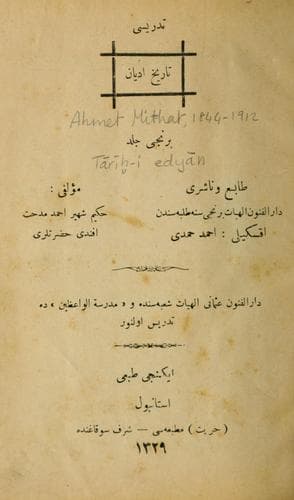 تدریسی
تاریخ ادیان
Ahmet Mithat, 1844-1912
برنجی جلد
Tārīḫ-i edyān
طابع و ناشری
مؤلفی :
دارالفنون الهیات برنجی سنه طلبه سندن
حکیم شهیر احمد مدحت
افسکیلی : احمد حمدی
افندی حضرتلری
دارالفنون عثمانی الهیات شعبه سنده و « مدرسة الواعظین » ده
تدریس اولنور
ایکنجی طبعی
استانبول
( حریت ) مطبعه سی — شرف سوقاغنده
۱۳۲۹